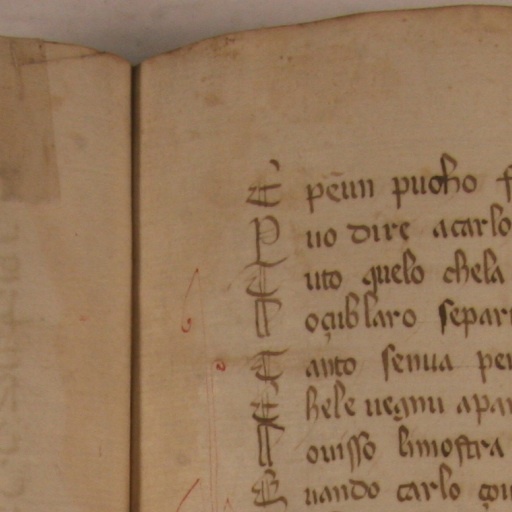 E pēun pucho
Puo dire a carlo
Tuto quelo chela
Moçiblaro separ
Tanto senua per
Chele uegnu apar
Mouisso limostra
Quando carlo çou